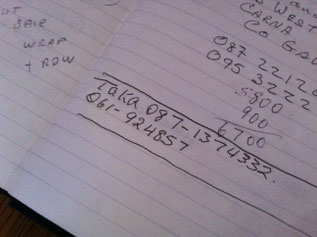 BALE
WRAP
+ ROW
WEST
CARNA
CO GA
087 2212
095 3222
5800
900
6700
Taka 087-1374332.
061-924857